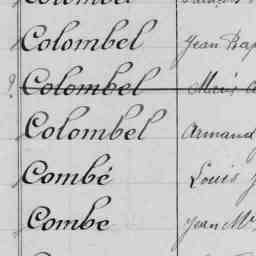 Colombel Jean Bap
? Colombel
Colombel Armand
Combé Louis J
Combe Jean M